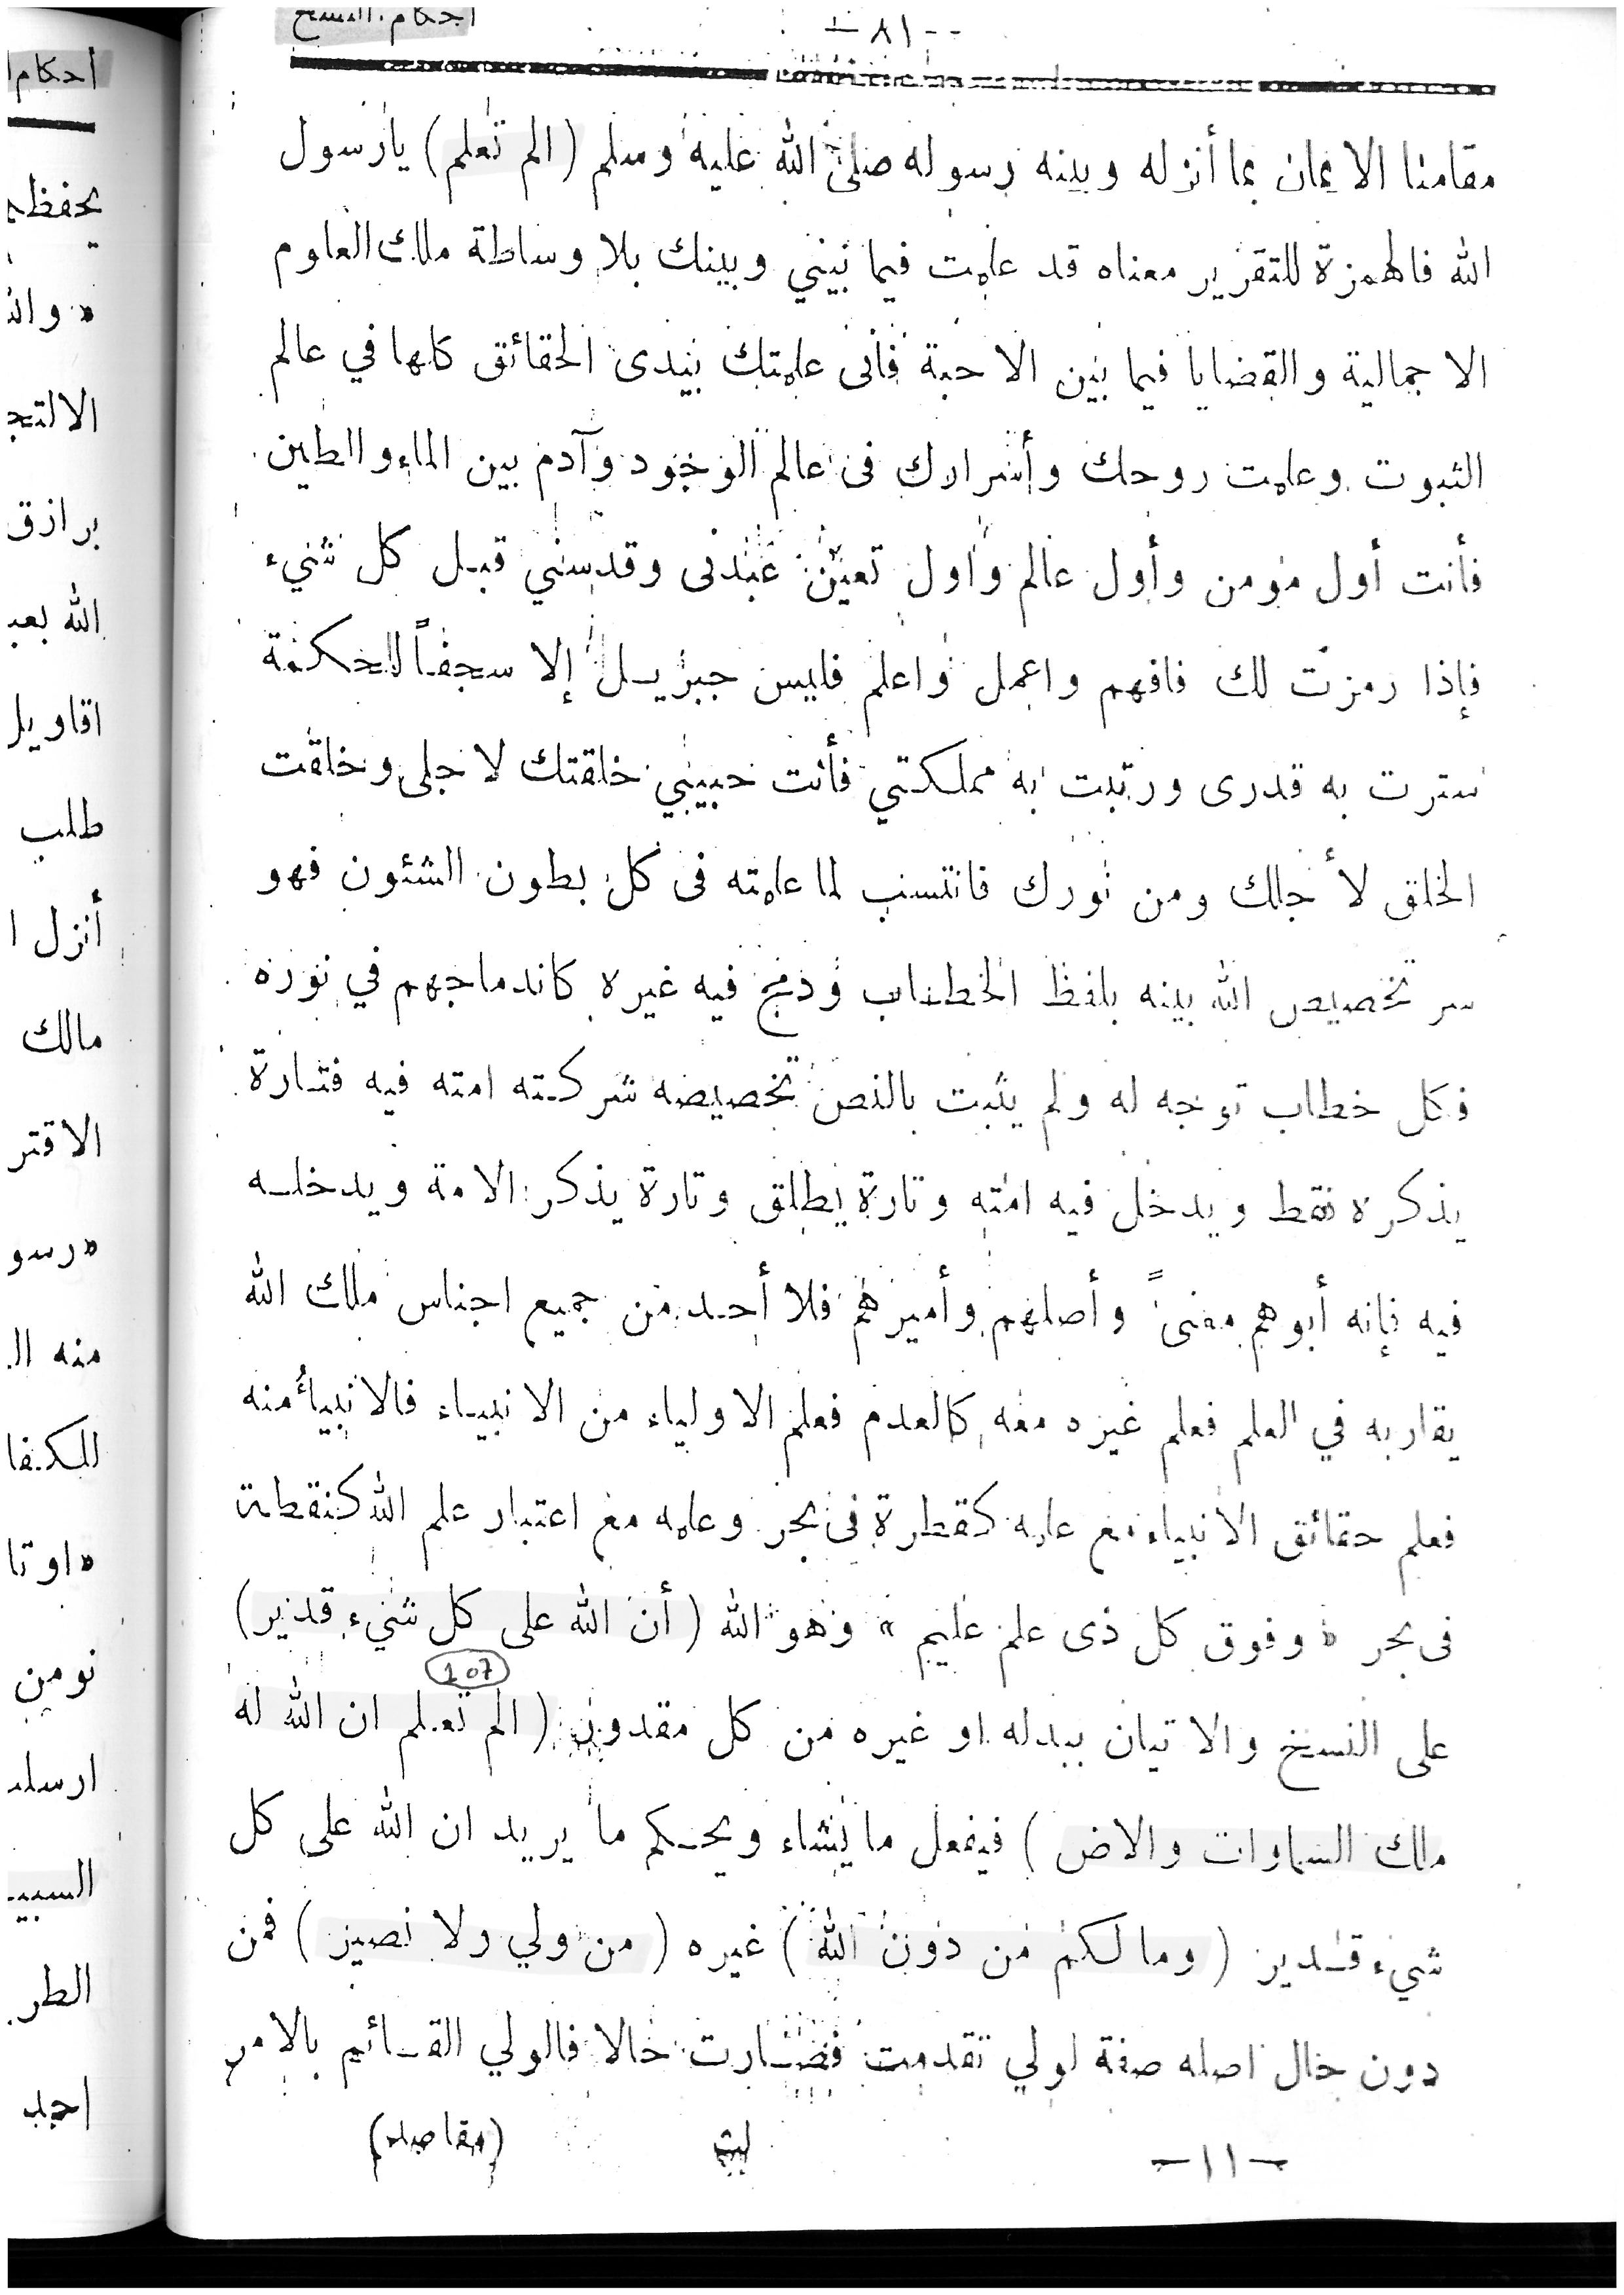 احكام النسخ
- ٨١ -
مقامنا الايمان بما أنزله وبينه رسوله صلى الله عليه وسلم (الم تعلم) يارسول
الله فالهمزة للتقرير معناه قد علمت فيما بيني وبينك بلا وساطة ملك العلوم
الاجمالية والقضايا فيما بين الاحبة فأنى علمتك بيدى الحقائق كلها في عالم
الثبوت وعلمت روحك وأسرارك فى عالم الوجود وآدم بين الماء والطين
فأنت أول مومن وأول عالم واول تعين عبدنى وقدسني قبل كل شيء
فإذا رمزت لك فافهم واعمل واعلم فليس جبريل إلا سجفاً لحكمة
سترت به قدرى ورتبت به مملكتي فأنت حبيبي خلقتك لاجلى وخلقت
الخلق لأجلك ومن نورك فانتسب لما علمته فى كل بطون الشئون فهو
سر تخصيص الله بينه بلفظ الخطاب ودمج فيه غيره كاندماجهم في نوره
فكل خطاب توجه له ولم يثبت بالنص تخصيصه شركته امته فيه فتارة
يذكره فقط ويدخل فيه امته وتارة يطلق وتارة يذكر الامة ويدخله
فيه فإنه أبوهم معنىً وأصلهم وأميرهم فلا أحد من جميع اجناس ملك الله
يقاربه في العلم فعلم غيره معه كالعدم فعلم الاولياء من الانبياء فالانبياء منه
فعلم حقائق الانبياء مع علمه كقطرة فى بحر وعلمه مع اعتبار علم الله كنقطة
فى بحر « وفوق كل ذى علم عليم » وهو الله (أن الله على كل شيء قدير)
107
على النسخ والاتيان ببدله او غيره من كل مقدور (الم تعلم ان الله له
ملك السماوات والاض) فيفعل ما يشاء ويحكم ما يريد ان الله على كل
شيء قدير (وما لكم من دون الله) غيره (من ولي ولا نصير) فمن
دون حال اصله صفة لولي تقدمت فصارت حالا فالولي القائم بالامر
- ١١ - لث (مقاصد)
أحكام
يحفظه
الالتج
برازق
الله بعب
اقاويل
طلب
أنزل ا
مالك
الاقتر
«رسو
منه ال
للكفا
«اوتا
نومن
ارسل
السبي
الطر
احد